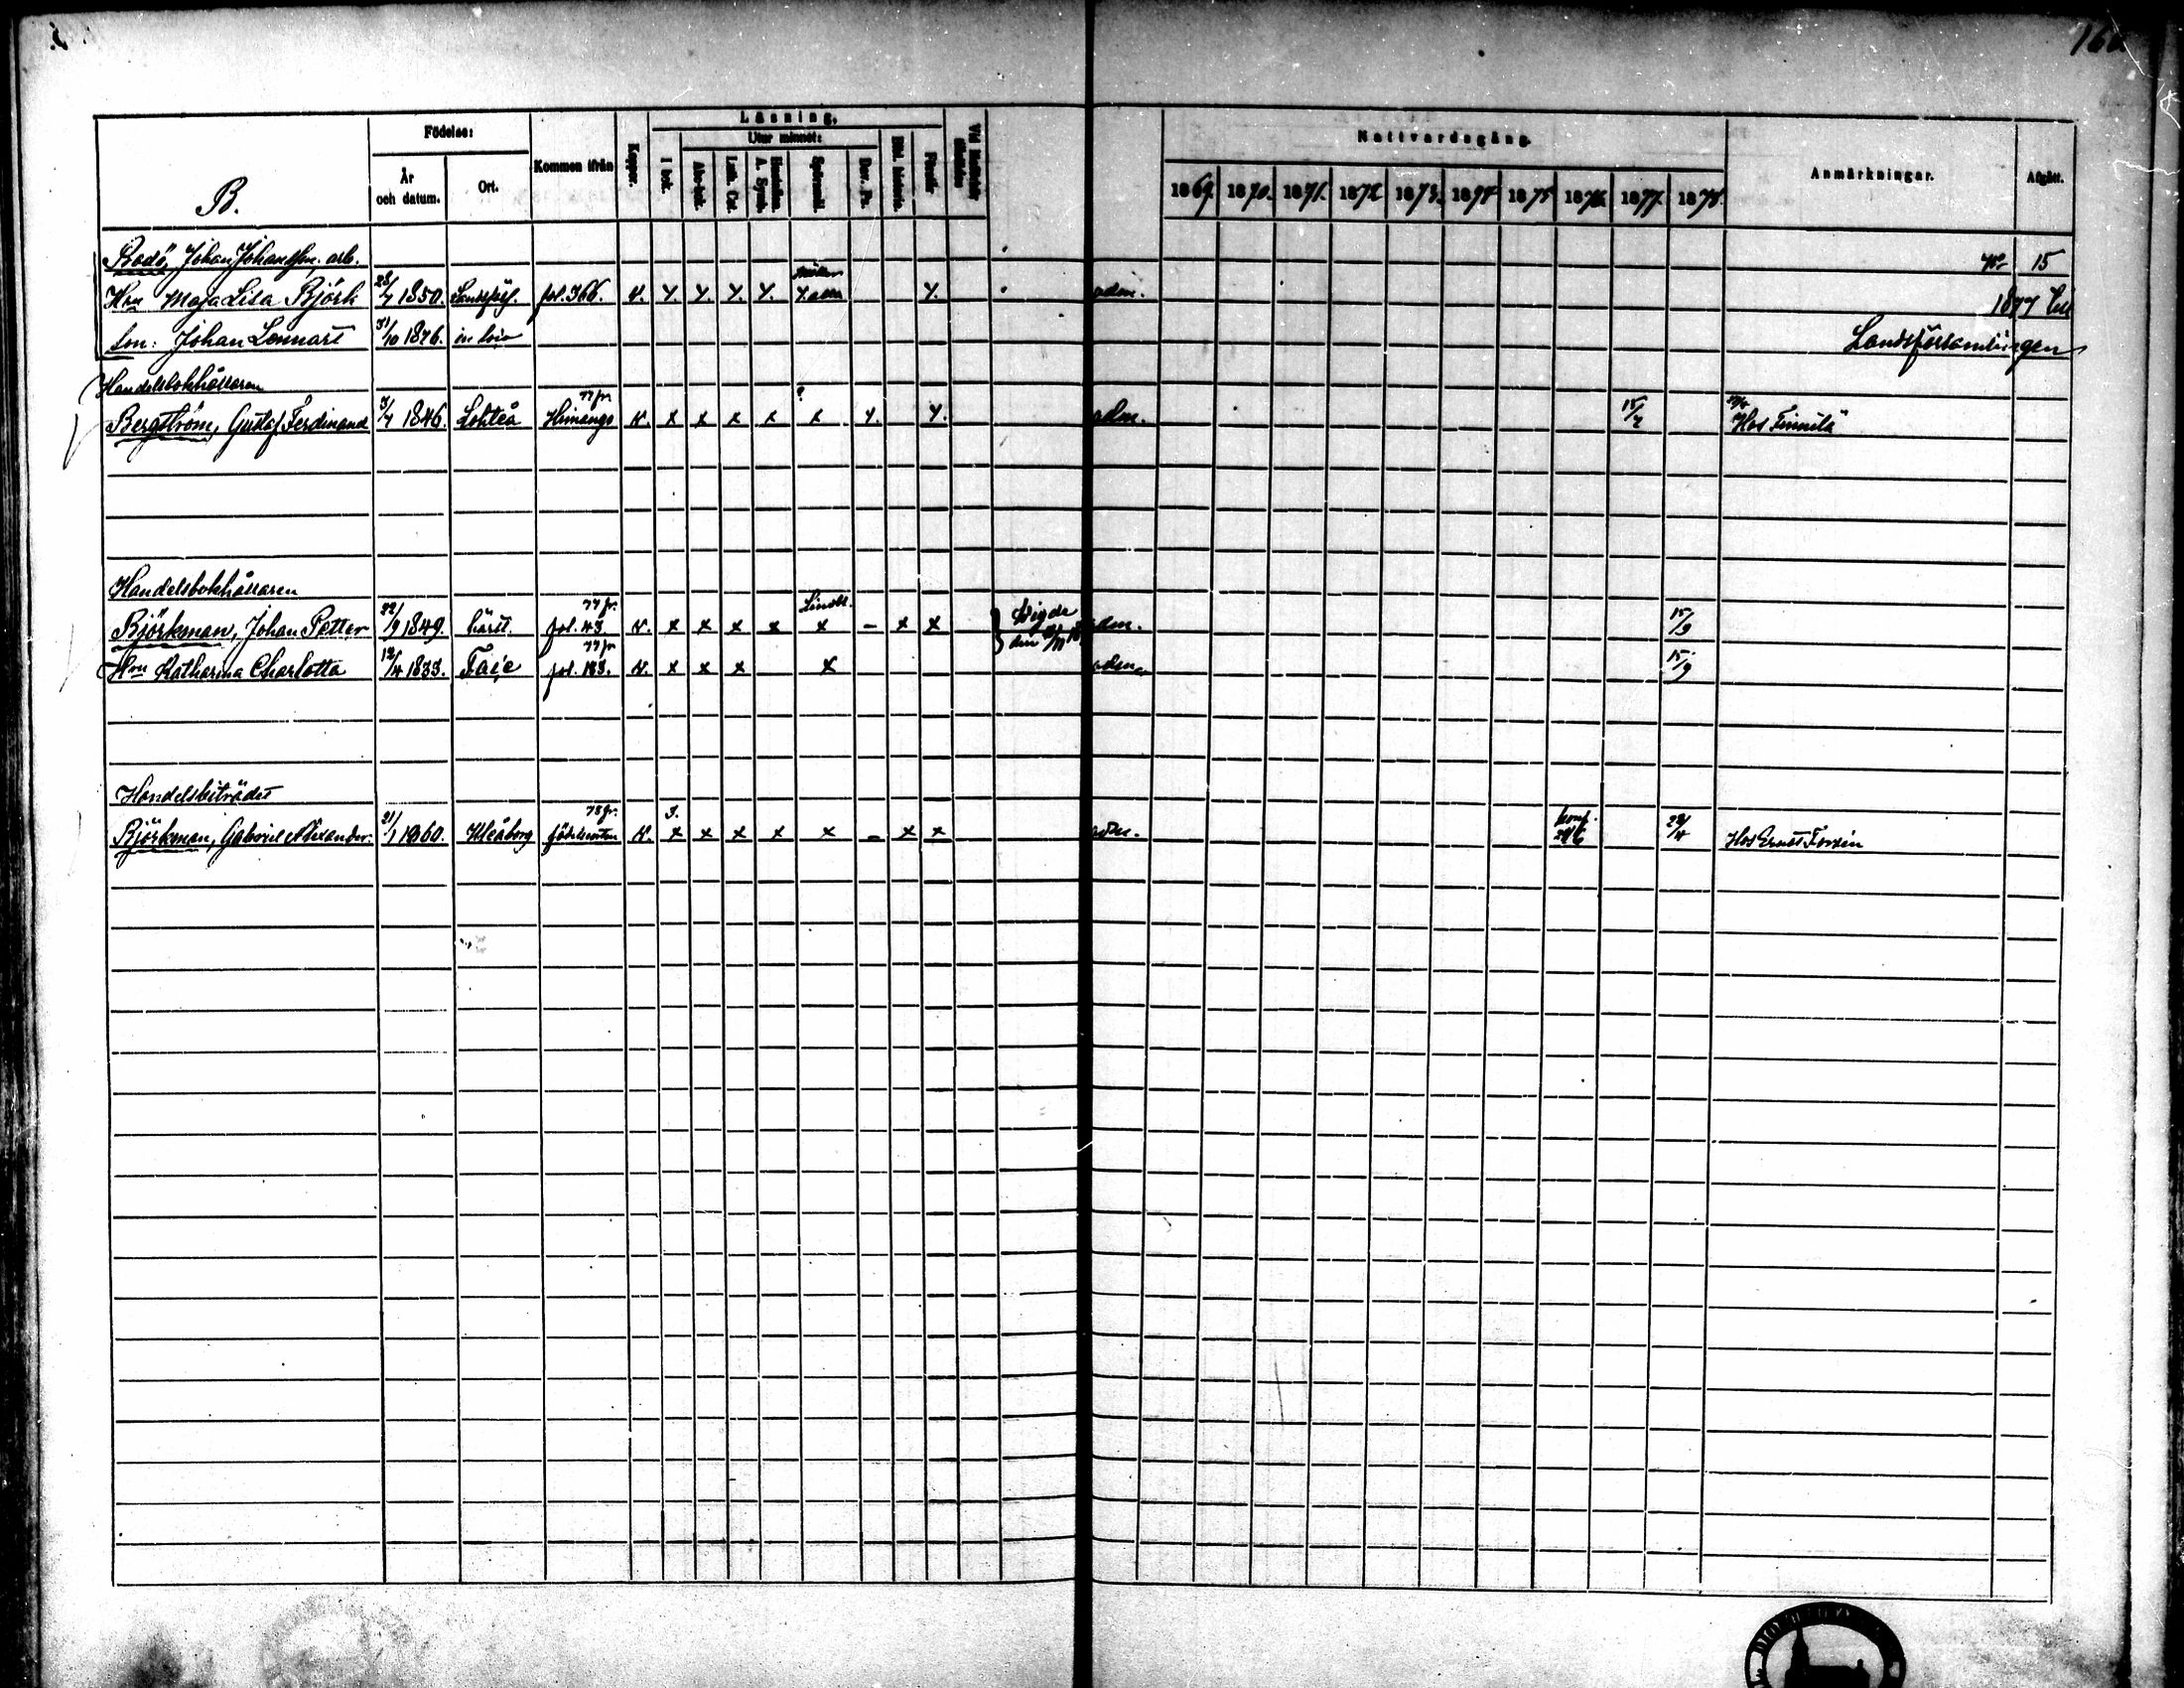 B.
Födelse:
År och datum.
Ort.
Kommen ifrån
Koppor.
Läsning.
I bok.
Utur minnet:
Abc-bok.
Luth. Cat.
Hustaflan. A. Symb.
Spörsmål.
Dav. Ps.
Bibl. historie.
Förstår
Nattvardsgång.
1869. 1870. 1871. 1872 1873. 1874 1875 1876 1877. 1878.
Anmärkningar.
Afgått.
Bodö, Johan Johansson. arb. 15
Hon Maja Lisa Björk 28/7 1850. Landsförs. fol. 366. adm. 1877 till
Son: Johan Lennart 31/10 1876. in loco Landsförsamlingen
Handelsbokhållaren
Bergström, Gustaf Ferdinand 3/7 1846. Lohteå 77 fr. Himango adm. 15/7 Hos Finnilä
Handelsbokhållaren
Björkman, Johan Petter 22/9 1849. härst. 77 fr. fol. 43 Vigde adm. 15/9
Hon Katharina Charlotta 13/4 1833. 77 fr. fol. 183. adm. 15/9
Handelsbiträdet
Björkman, Gabriel Alexander. 21/1 1860. Uleåborg 78 fr. födelseorten adm. konf. 28/4 Hos Ernst Forsén